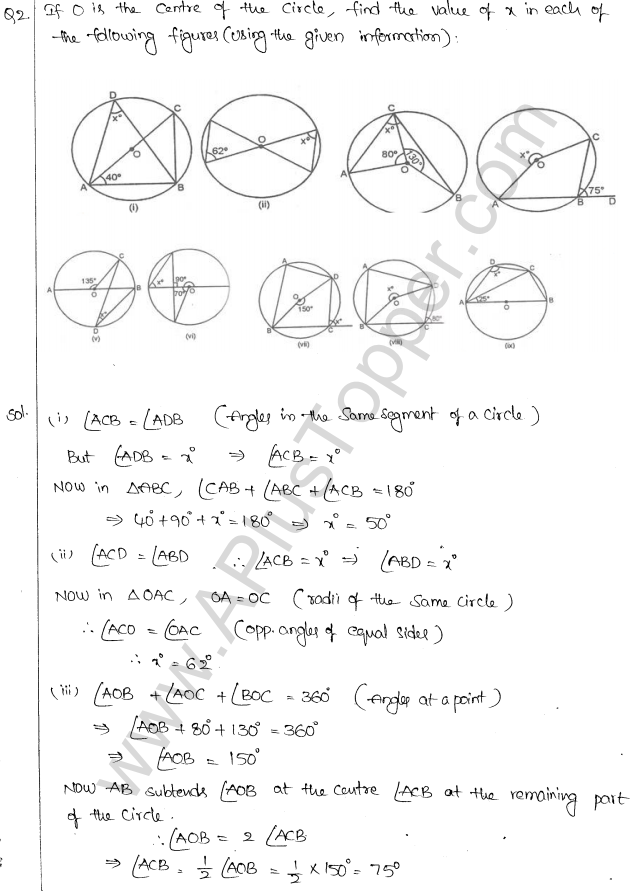 Q2. If O is the Centre of the Circle, find the value of x in each of
the following figures (using the given information):
D
C
x°
O
40°
A
B
(i)
62°
O
x°
(ii)
C
x°
80°
130°
O
A
B
C
x°
O
75°
A
B
D
C
135°
A
O
B
x°
D
(v)
x°
90°
70°
O
(vi)
A
D
O
150°
x°
B
C
(vii)
A
x°
D
O
80°
B
C
(viii)
D
x°
C
25°
A
O
B
(ix)
Sol. (i) ∠ACB = ∠ADB (Angles in the Same Segment of a Circle)
But ∠ADB = x° ⇒ ∠ACB = x°
Now in ΔABC, ∠CAB + ∠ABC + ∠ACB = 180°
⇒ 40° + 90° + x° = 180° ⇒ x° = 50°
(ii) ∠ACD = ∠ABD . ∴ ∠ACB = x° ⇒ ∠ABD = x°
Now in ΔOAC, OA = OC (radii of the Same Circle)
∴ ∠ACO = ∠OAC (opp. angles of equal sides)
∴ x° = 62°
(iii) ∠AOB + ∠AOC + ∠BOC = 360° (Angles at a point)
⇒ ∠AOB + 80° + 130° = 360°
⇒ ∠AOB = 150°
Now AB subtends ∠AOB at the centre ∠ACB at the remaining part
of the Circle.
∴ ∠AOB = 2 ∠ACB
⇒ ∠ACB = 1/2 ∠AOB = 1/2 × 150° = 75°
www.APlusTopper.com